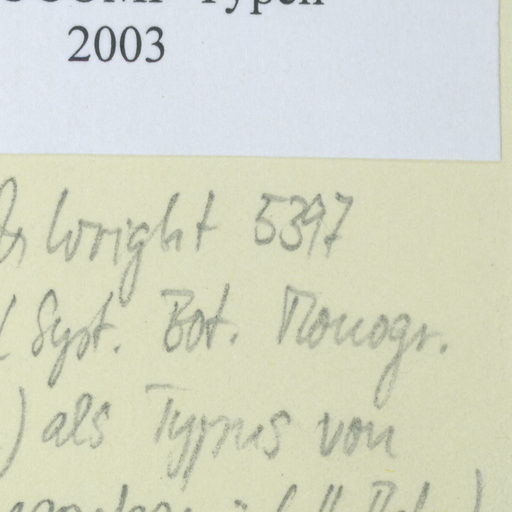 Typen
2003
Wright 5397
(Syst. Bot. Monogr.
) als Typus von